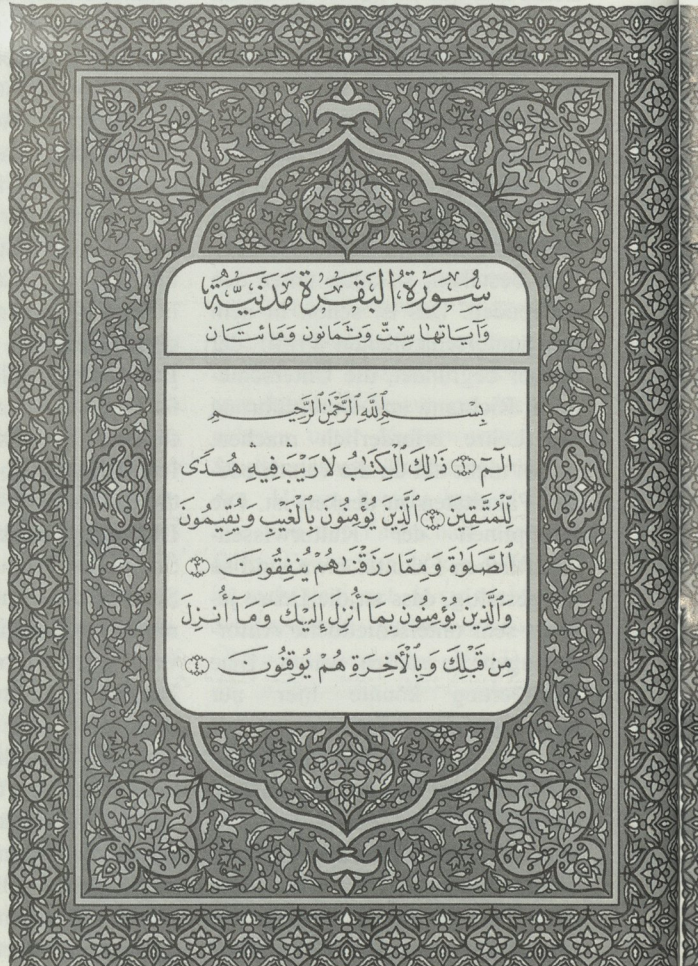 سُورَةُ الْبَقَرَةِ مَدَنِيَّةٌ
وَآيَاتُهَا سِتٌّ وَثَمَانُونَ وَمَائَتَانِ
بِسْمِ ٱللَّهِ ٱلرَّحْمَٰنِ ٱلرَّحِيمِ
الٓمٓ ﴿١﴾ ذَٰلِكَ ٱلْكِتَٰبُ لَا رَيْبَ فِيهِ هُدًى
لِّلْمُتَّقِينَ ﴿٢﴾ ٱلَّذِينَ يُؤْمِنُونَ بِٱلْغَيْبِ وَيُقِيمُونَ
ٱلصَّلَوٰةَ وَمِمَّا رَزَقْنَٰهُمْ يُنفِقُونَ ﴿٣﴾
وَٱلَّذِينَ يُؤْمِنُونَ بِمَآ أُنزِلَ إِلَيْكَ وَمَآ أُنزِلَ
مِن قَبْلِكَ وَبِٱلْأَخِرَةِ هُمْ يُوقِنُونَ ﴿٤﴾